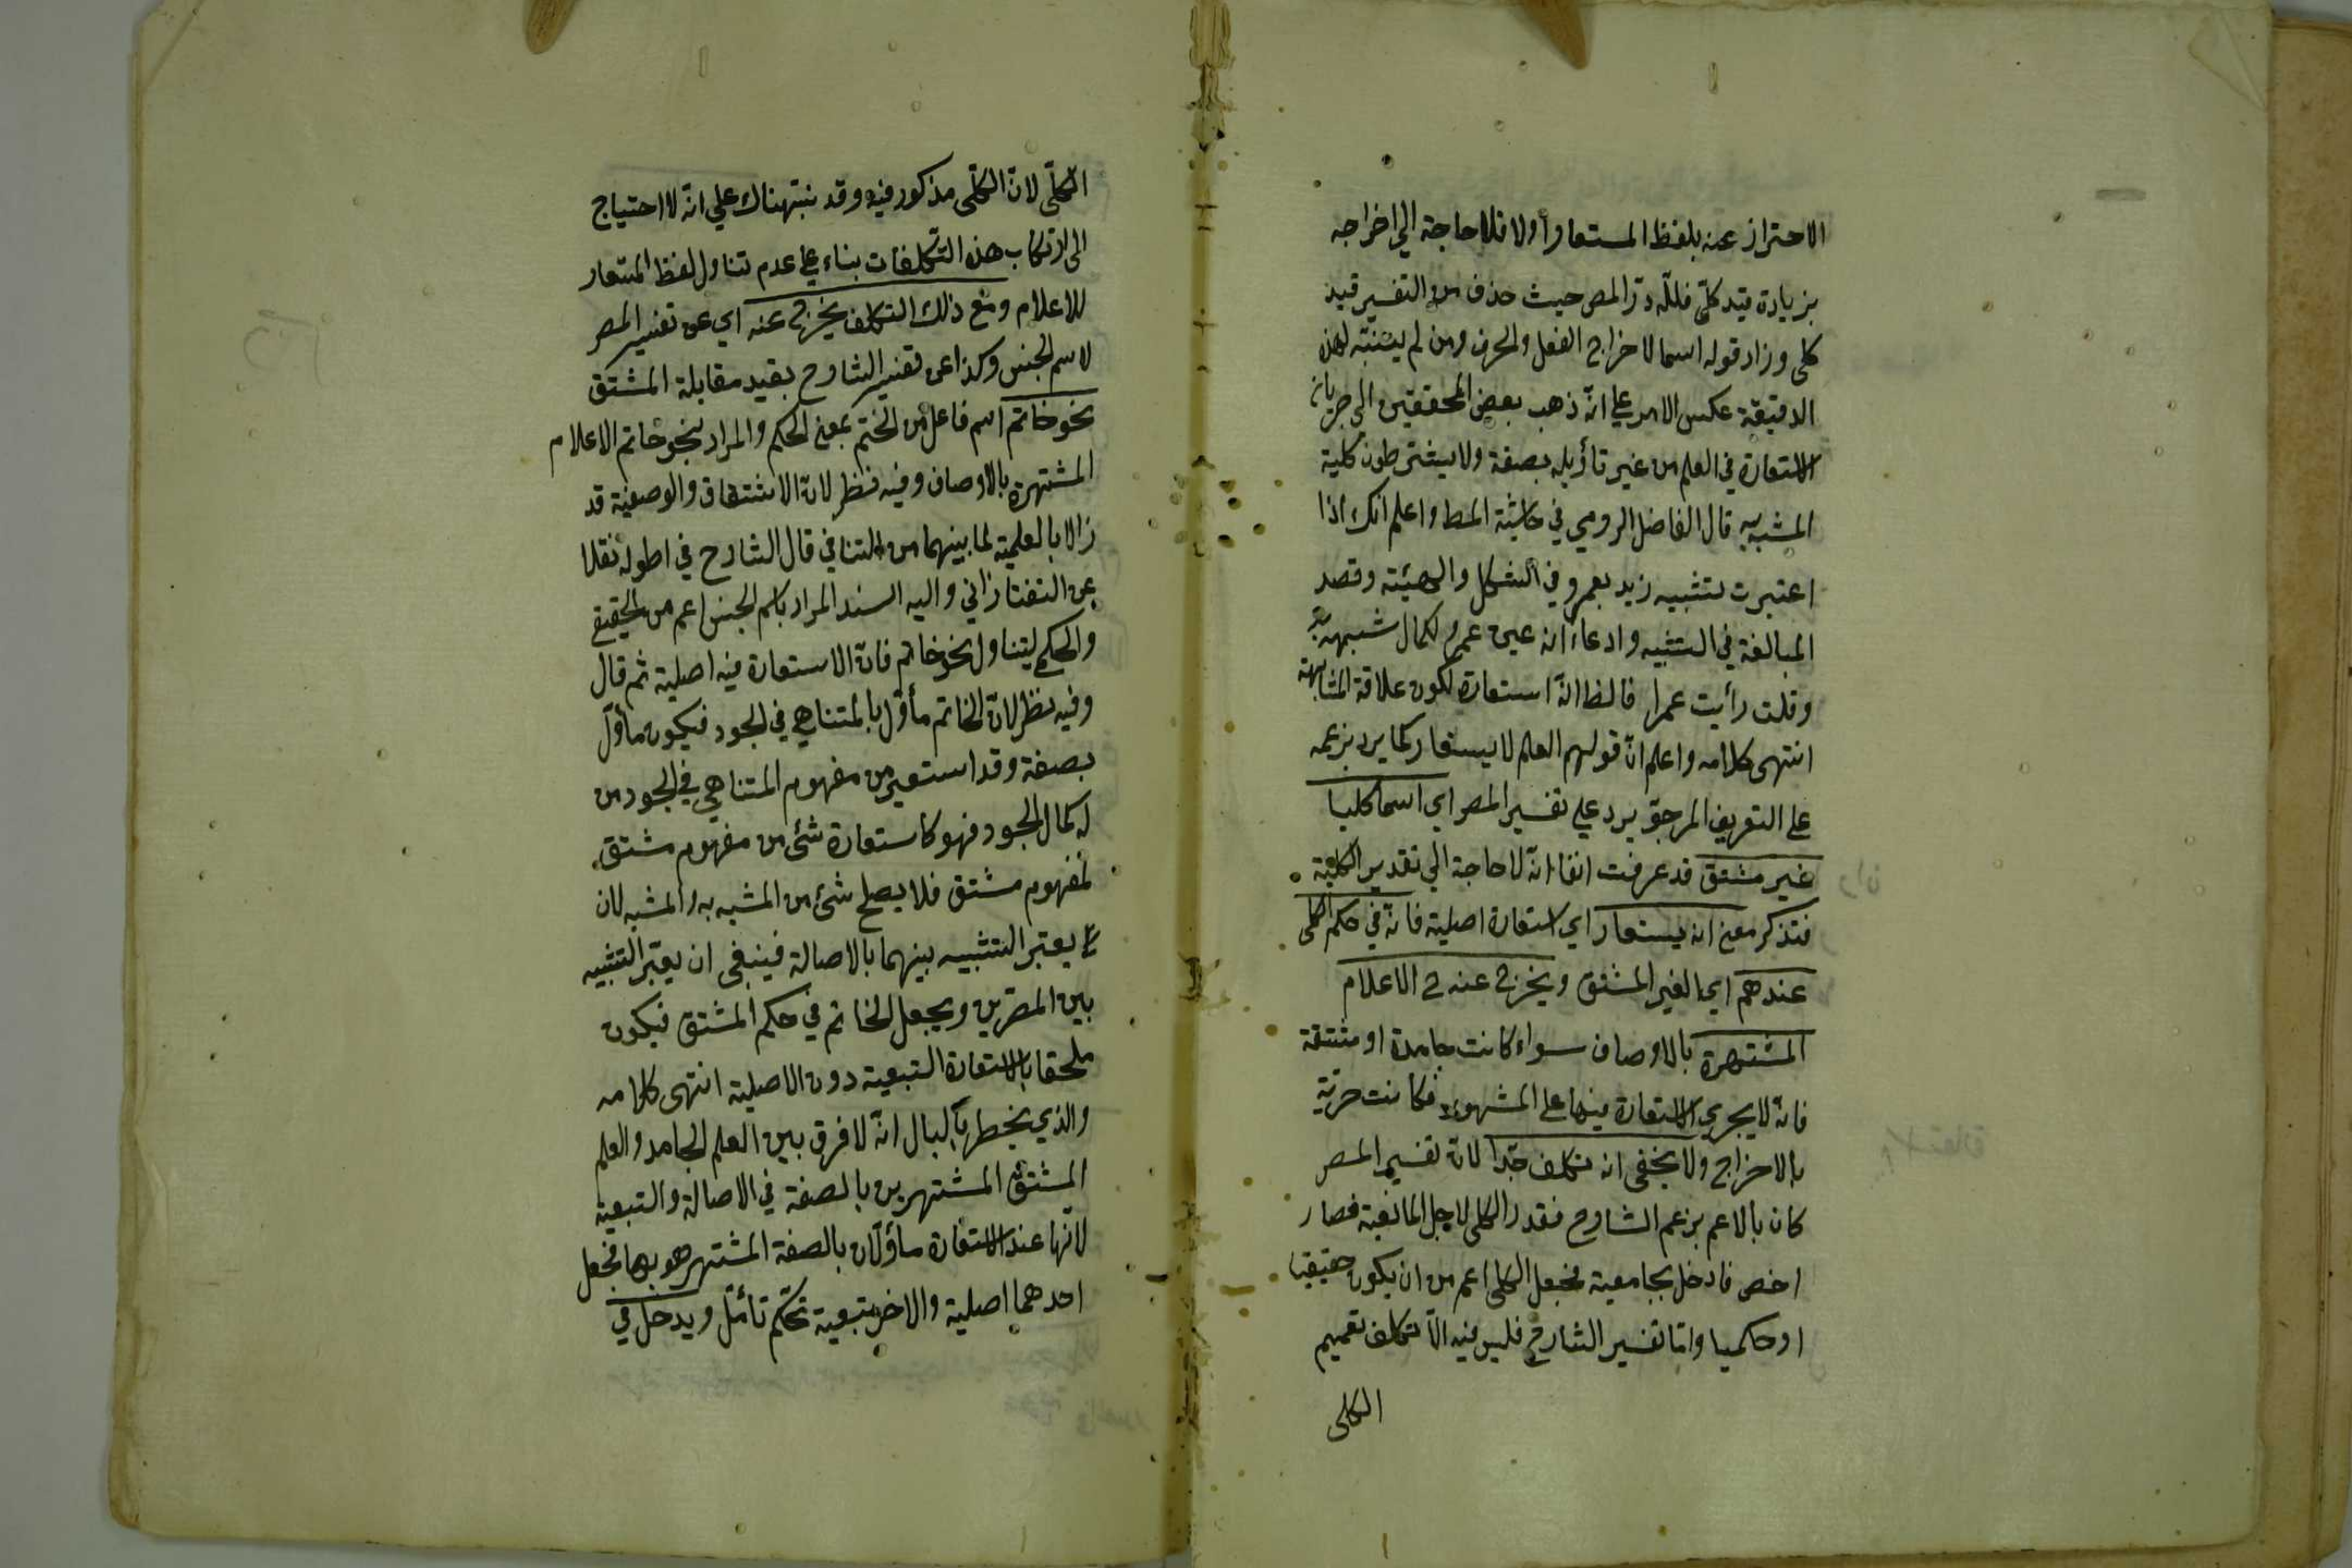 الاحتراز عنه بلفظ المستعار أولا فلا حاجة الي اخراجه
بزيادة قيد كلّي فللّه درّ المص حيث حذف من التفسير قيد
كلى وزاد قوله اسما لاخراج الفعل والحرف ومن لم يتنبّه لهذه
الدقيقة عكس الامر على انّه ذهب بعض المحققين الى جريان
الاستعارة في العلم من غير تأويله بصفة ولا يشترطون كلية
المشبه به قال الفاضل الرومي في حاشية المط واعلم انك اذا
اعتبرت تشبيه زيد بعمرو في الشكل والهيئة وقصد
المبالغة في التشبيه وادعاء انه عين عمرو لكمال شبهه به
وقلت رأيت عمرا فالظ انّه استعارة لكون علاقة المشابهة
انتهى كلامه واعلم انّ قولهم العلم لا يستعار كما يرد بزعمه
على التعريف المرجوّ يرد علي تفسير المص اي اسما كليا
غير مشتق قد عرفت انفا انّه لا حاجة الي تقدير الكلية
فتذكر معنى انه يستعار اي استعارة اصلية فانّه في حكم الكلى
عندهم اي الغير المشتق ويخرج عنه ح الاعلام
المشتهرة بالاوصاف سواء كانت جامدة او مشتقة
فانّه لا يجري الاستعارة فيها على المشهور فكانت حرّية
بالاخراج ولا يخفى انه تكلف جدّا لانّ تفسير المص
كان بالاعم بزعم الشارح فقدر الكلى لاجل المانعية فصار
اخص فادخل بجامعية فجعل الكلى اعم من ان يكون حقيقيا
او حكميا وامّا تفسير الشارح فليس فيه الّا تكلف تعميم
الكلى
الكلّى لانّ الكلّى مذكور فيه وقد نبّه هناك علي انّه لا احتياج
الى ارتكاب هذه التكلفات بناء على عدم تناول لفظ المستعار
للاعلام ومع ذلك التكلف يخرج عنه اي عن تفسير المص
لاسم الجنس وكذا عن تفسير الشارح بقيد مقابلة المشتق
نحو خاتم اسم فاعل من الختم بمعنى الحكم والمراد بنحو خاتم الاعلام
المشتهرة بالاوصاف وفيه نظر لانّ الاشتقاق والوصفية قد
زالا بالعلمية لما بينهما من التنافي قال الشارح في اطوله نقلا
عن التفتازاني واليه السند المراد باسم الجنس اعم من الحقيقي
والحكمي ليتناول نحو خاتم فانّ الاستعارة فيه اصلية ثم قال
وفيه نظر لانّ الخاتم مأوّل بالمتناهي في الجود فيكون مأوّل
بصفة وقد استعير من مفهوم المتناهي في الجود من
له كمال الجود فهو كاستعارة شئ من مفهوم مشتق
لمفهوم مشتق فلا يصلح شئ من المشبه به والمشبه لان
يعتبر التشبيه بينهما بالاصالة فينبغى ان يعتبر التشبيه
بين المصدرين ويجعل الخاتم في حكم المشتق فيكون
ملحقا بالاستعارة التبعية دون الاصلية انتهى كلامه
والذي يخطر بالبال انّه لا فرق بين العلم الجامد والعلم
المشتق المشتهرين بالصفة في الاصالة والتبعية
لانّها عند الاستعارة مأوّلان بالصفة المشتهر هو بها فجعل
احدهما اصلية والاخر تبعية تحكّم تأمّل ويدخل في